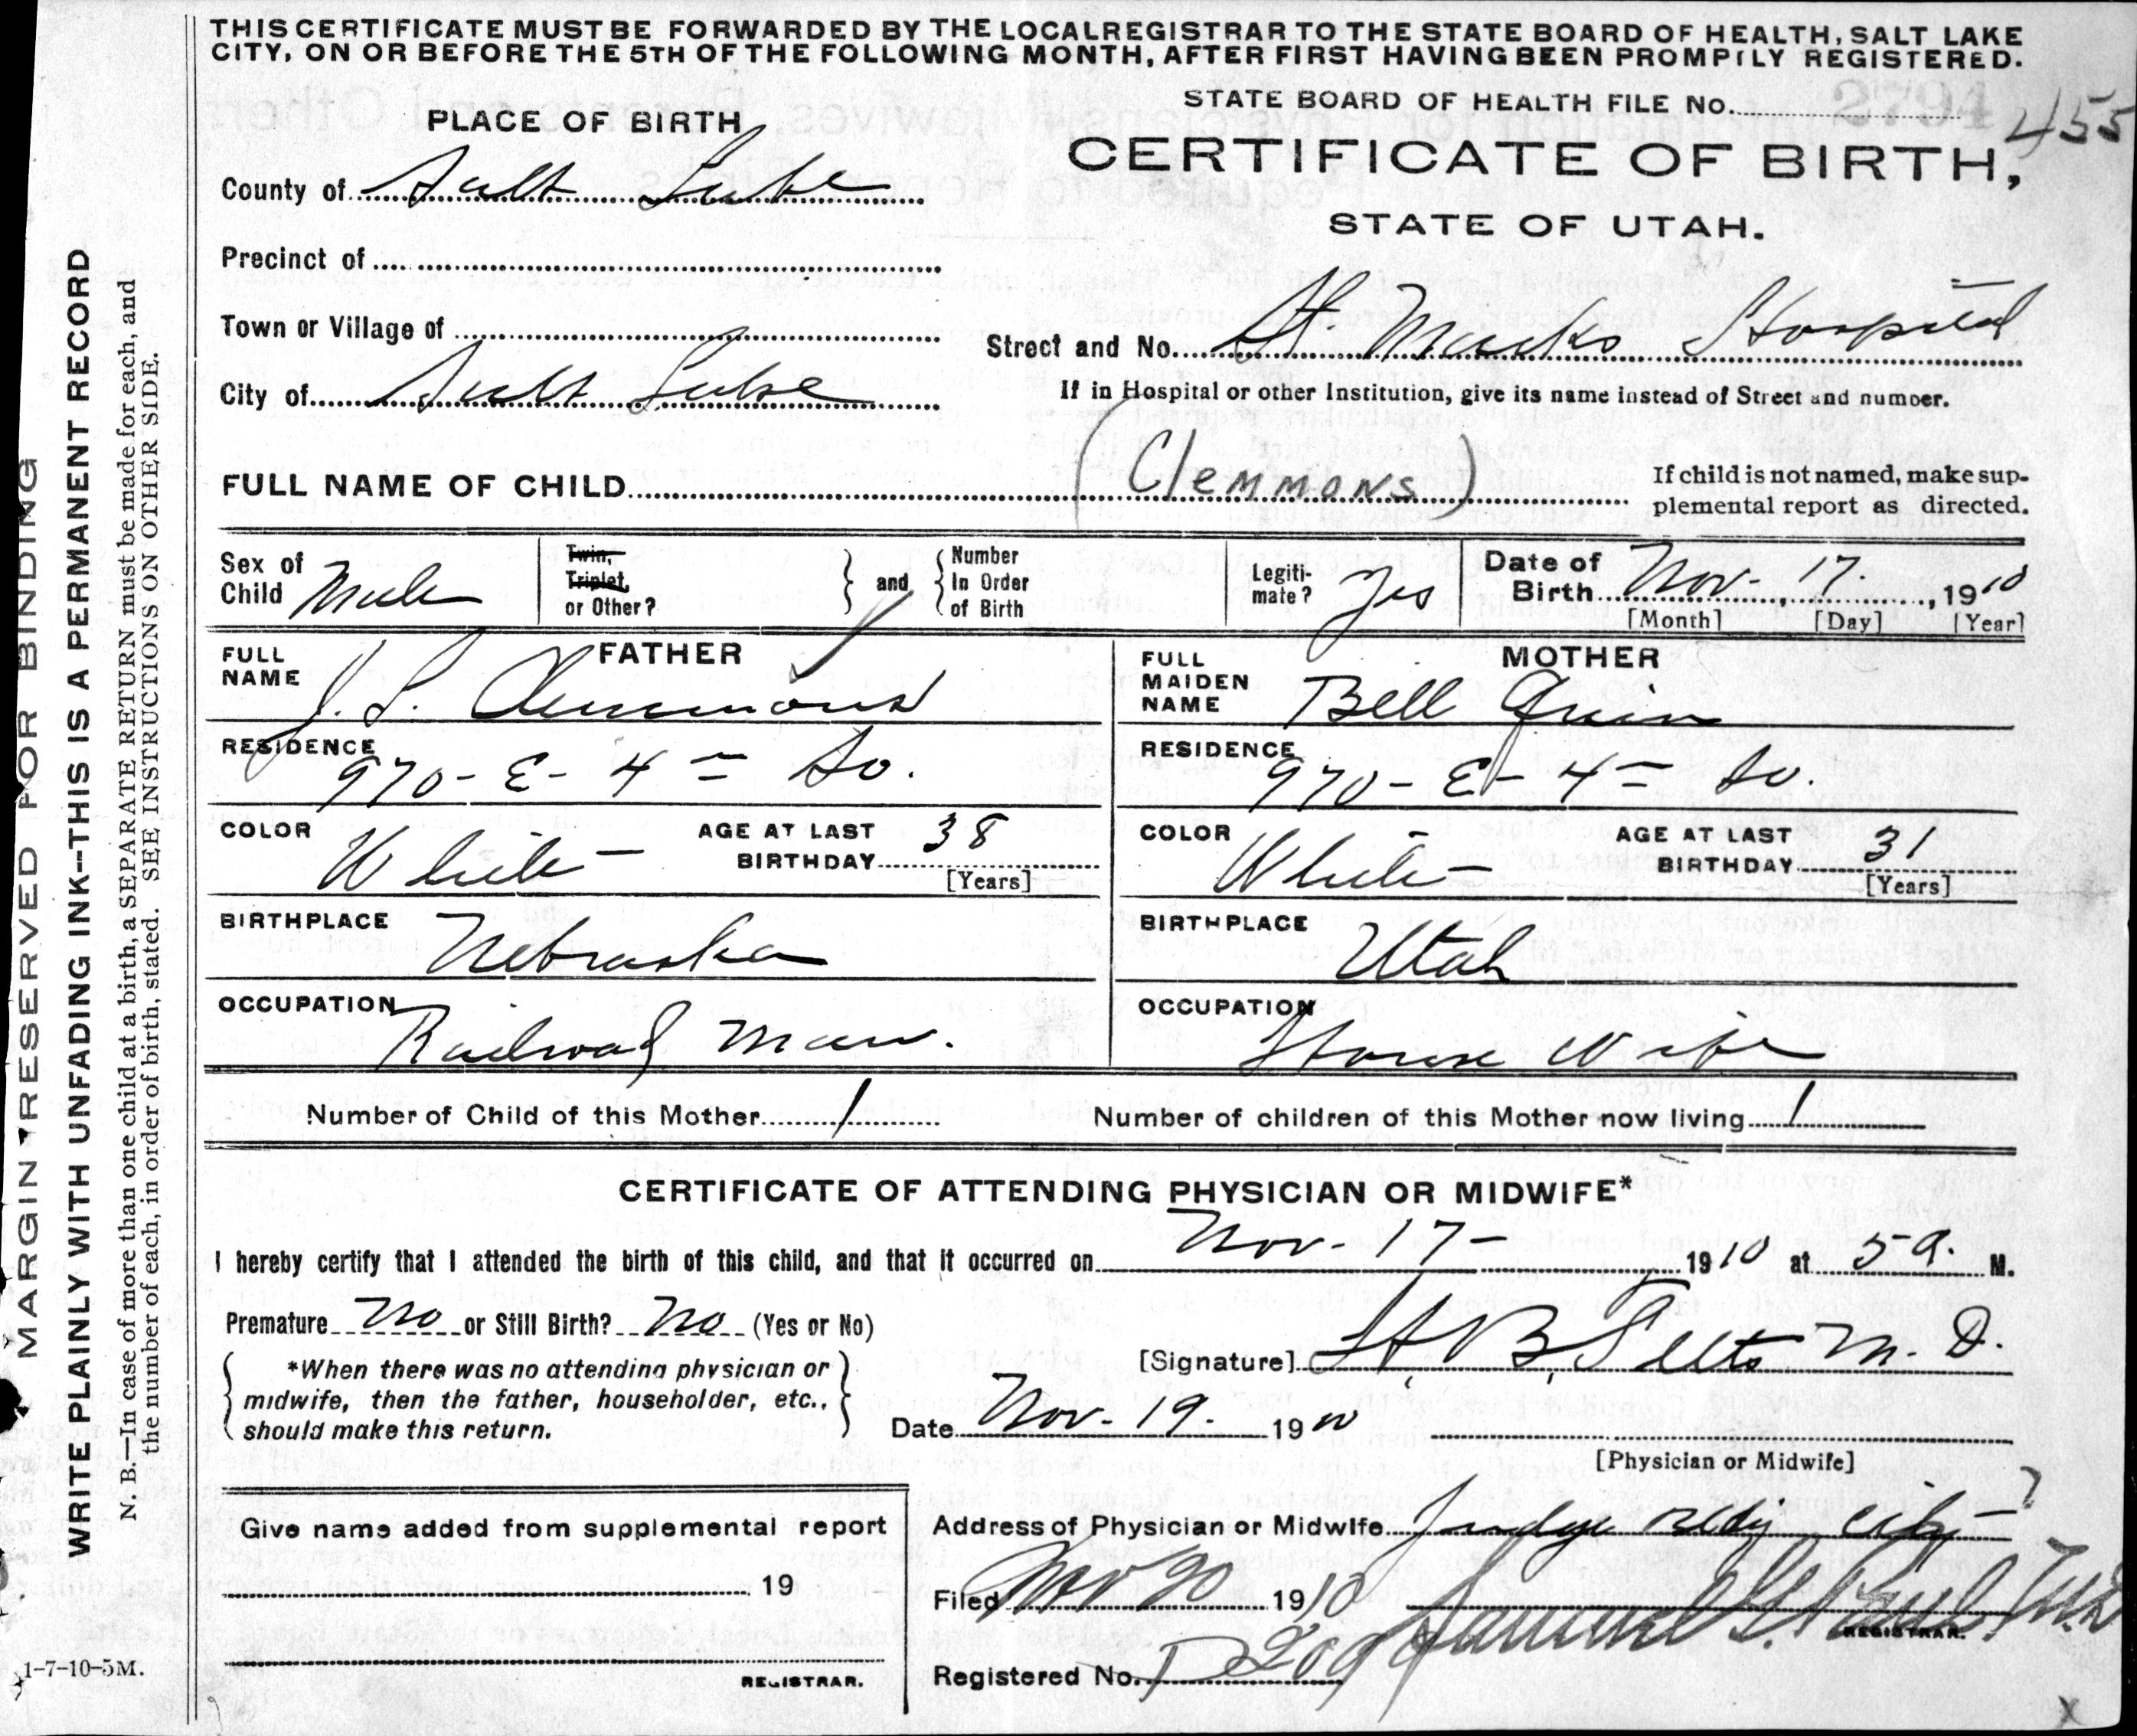 THIS CERTIFICATE MUST BE FORWARDED BY THE LOCAL REGISTRAR TO THE STATE BOARD OF HEALTH, SALT LAKE
CITY, ON OR BEFORE THE 5TH OF THE FOLLOWING MONTH, AFTER FIRST HAVING BEEN PROMPTLY REGISTERED.
STATE BOARD OF HEALTH FILE No. 2794 455
PLACE OF BIRTH
CERTIFICATE OF BIRTH,
STATE OF UTAH.
County of Salt Lake
Precinct of
Town or Village of
Street and No. St. Marks Hospital
City of Salt Lake
If in Hospital or other Institution, give its name instead of Street and number.
FULL NAME OF CHILD (Clemmons)
If child is not named, make sup-
plemental report as directed.
Sex of Child Male
Twin, Triplet, or Other?
and
Number In Order of Birth
Legiti-mate? Yes
Date of Birth Nov. 17. 1910
[Month] [Day] [Year]
FATHER
FULL NAME J. L. Clemmons
RESIDENCE 970 - E - 4= So.
COLOR White
AGE AT LAST BIRTHDAY 38 [Years]
BIRTHPLACE Nebraska
OCCUPATION Railroad Man.
MOTHER
FULL MAIDEN NAME Bell
RESIDENCE 970 - E - 4= So.
COLOR White
AGE AT LAST BIRTHDAY 31 [Years]
BIRTHPLACE Utah
OCCUPATION House Wife
Number of Child of this Mother 1
Number of children of this Mother now living 1
CERTIFICATE OF ATTENDING PHYSICIAN OR MIDWIFE*
I hereby certify that I attended the birth of this child, and that it occurred on Nov - 17 - 1910 at 5 a. M.
Premature No or Still Birth? No (Yes or No)
[Signature] H. B. M. D.
*When there was no attending physician or
midwife, then the father, householder, etc.,
should make this return.
Date Nov. 19. 1910
[Physician or Midwife]
Give name added from supplemental report
19
REGISTRAR.
Address of Physician or Midwife Judge Bldg City
Filed Nov 20 1910 Samuel G. Paul
REGISTRAR.
Registered No.
MARGIN RESERVED FOR BINDING
WRITE PLAINLY WITH UNFADING INK--THIS IS A PERMANENT RECORD
N. B.—In case of more than one child at a birth, a SEPARATE RETURN must be made for each, and
the number of each, in order of birth, stated. SEE INSTRUCTIONS ON OTHER SIDE.
1-7-10-5M.
x